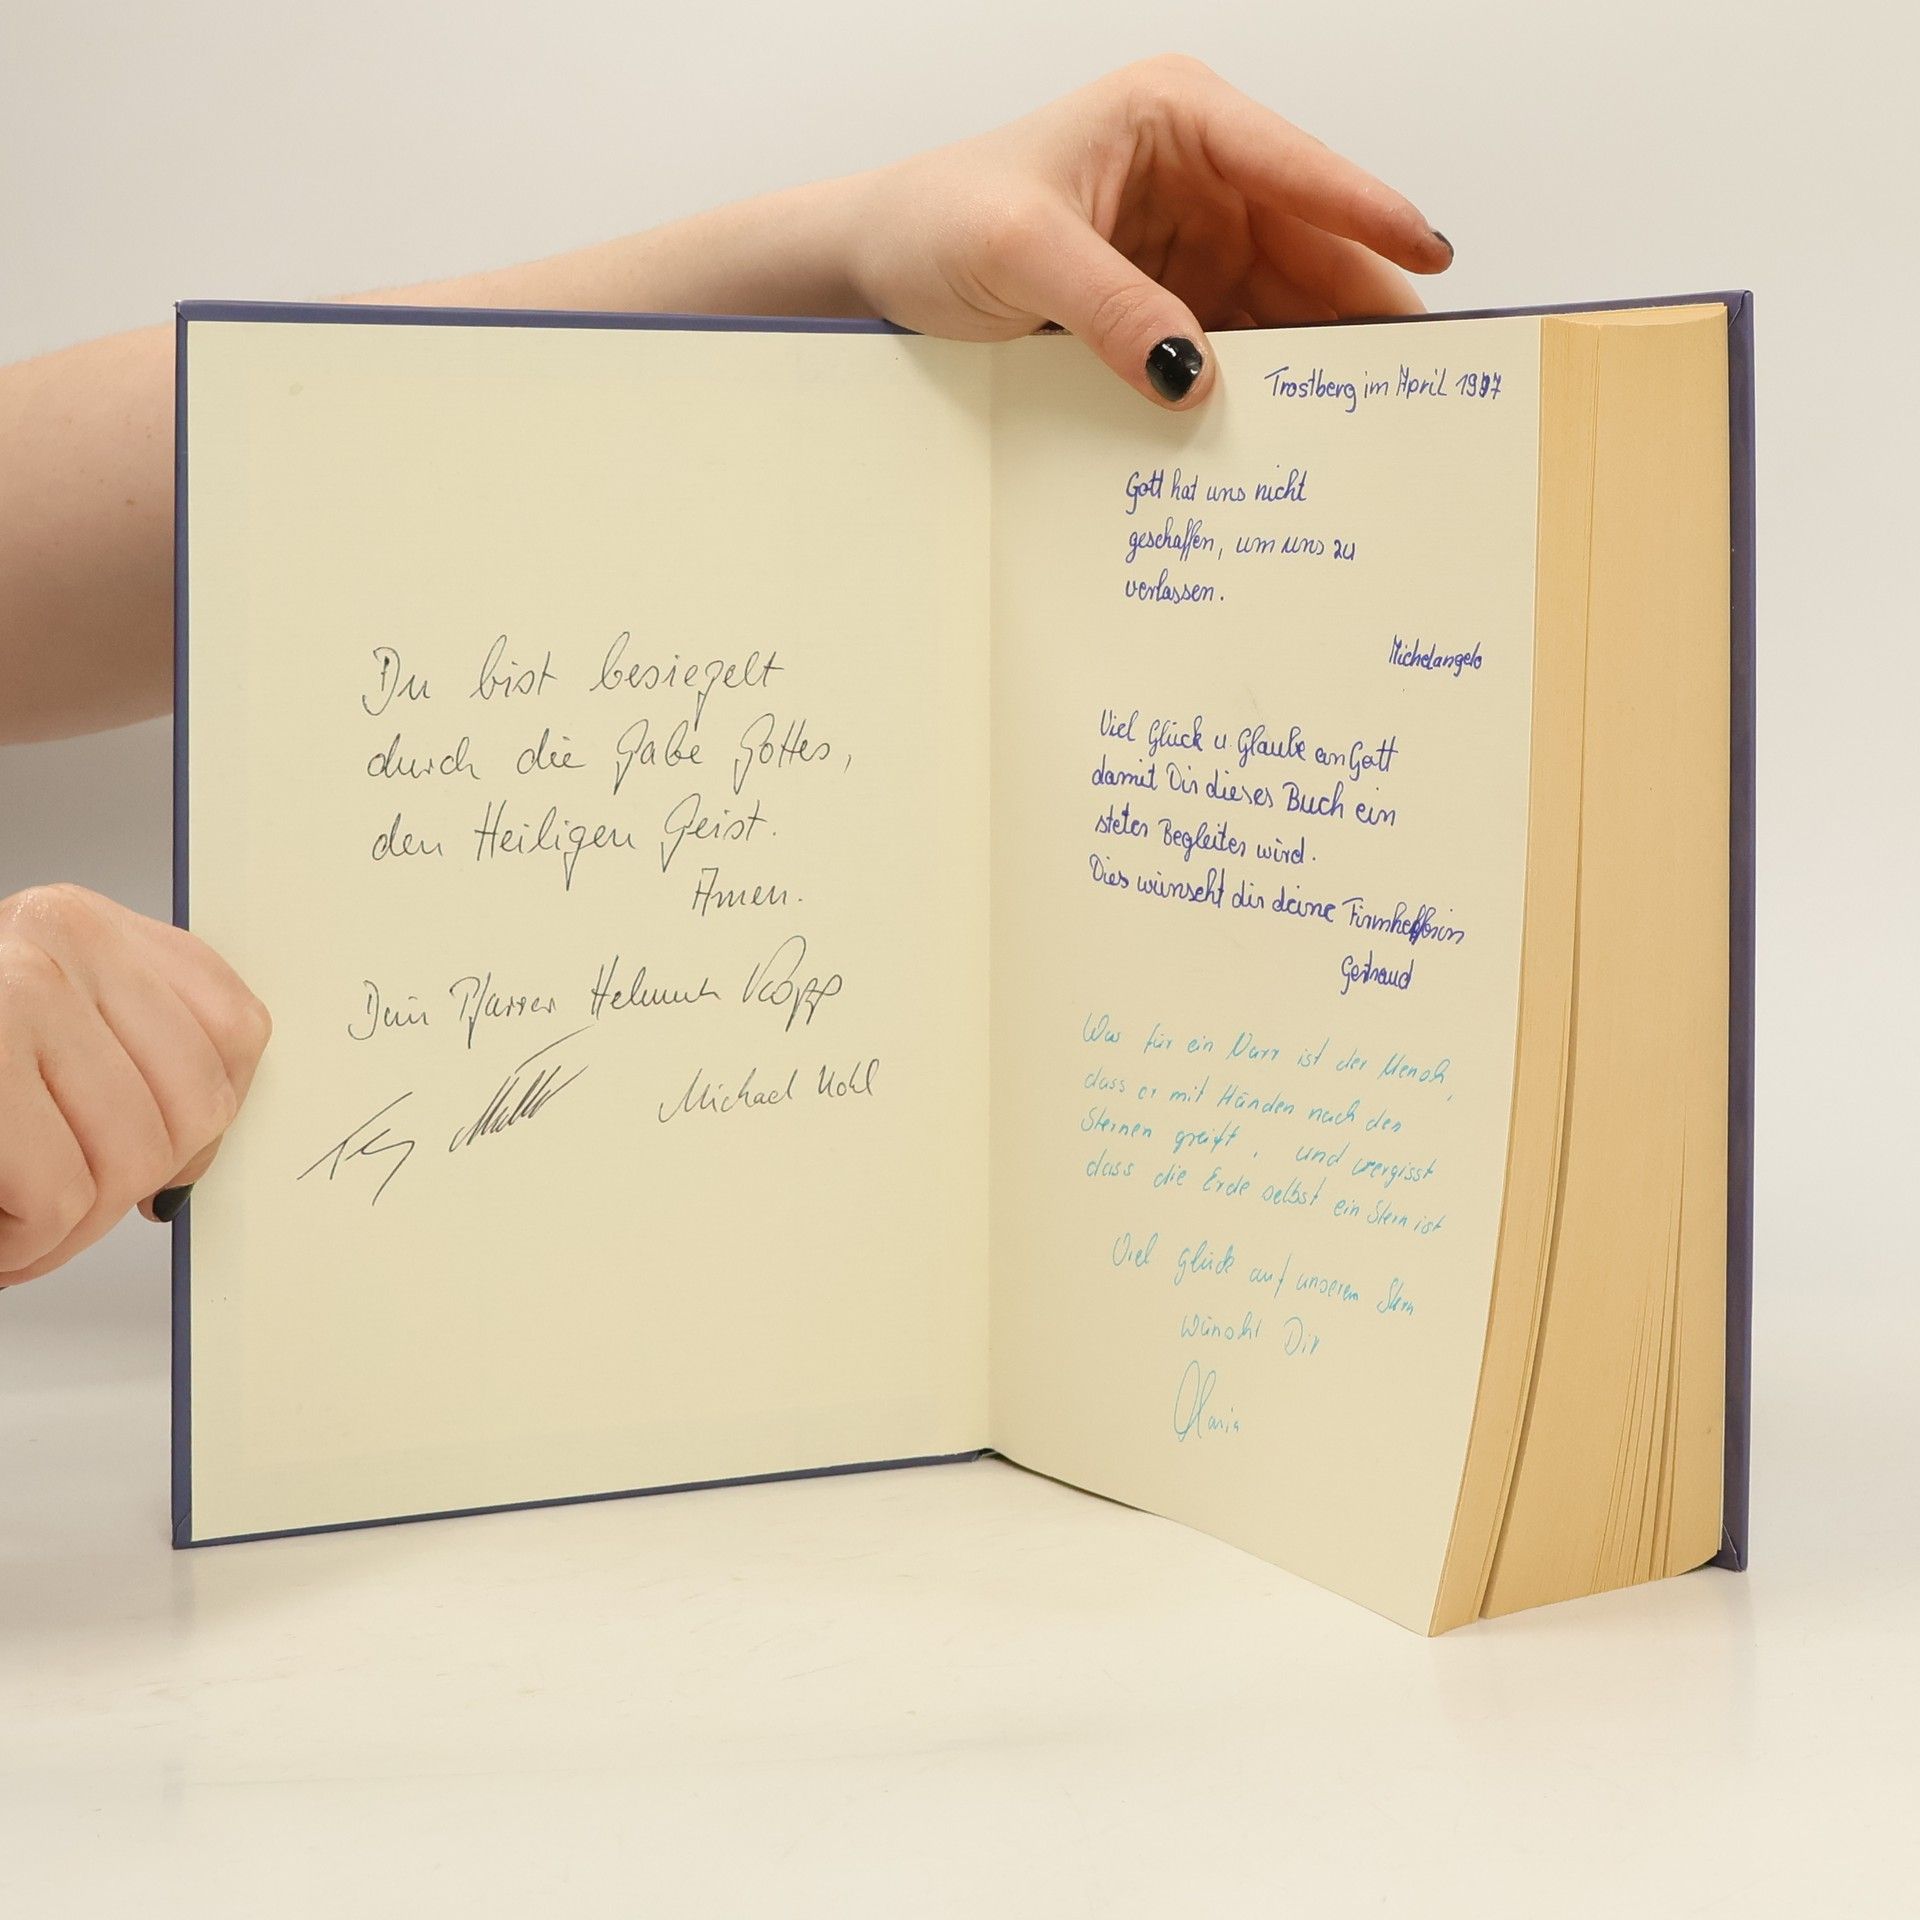 Du bist besiegelt
durch die Gabe Gottes,
den Heiligen Geist.
Amen.
Dein Pfarrer Helmut Kopp
Michael Kohl
Trostberg im April 1997
Gott hat uns nicht
geschaffen, um uns zu
verlassen.
Michelangelo
Viel Glück u. Glaube an Gott
damit Dir dieses Buch ein
steter Begleiter wird.
Dies wünscht dir deine Firmhelferin
Gertraud
Was für ein Narr ist der Mensch,
dass er mit Händen nach den
Sternen greift, und vergisst
dass die Erde selbst ein Stern ist
Viel Glück auf unserem Stern
wünscht Dir
Maria